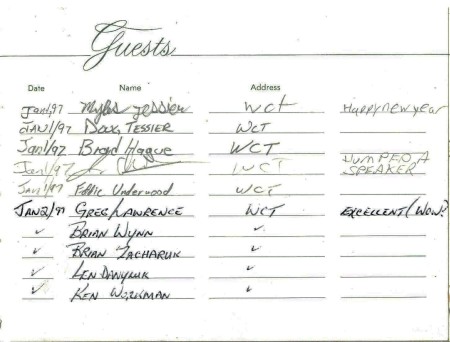 Guests
Date Name Address
Jan1/97 Myles Tessier WCT Happy new year
JAN1/97 Doug TESSIER WCT
Jan1/97 Brad Hague WCT
Jan1/97 WCT HUMPED A SPEAKER
Jan1/97 Eddie Underwood WCT
JAN2/97 GREG LAWRENCE WCT EXCELLENT (WOW!)
✓ BRIAN WYNN ✓
✓ BRIAN ZACHARUK ✓
✓ LEN DANYLUK ✓
✓ KEN WORKMAN ✓